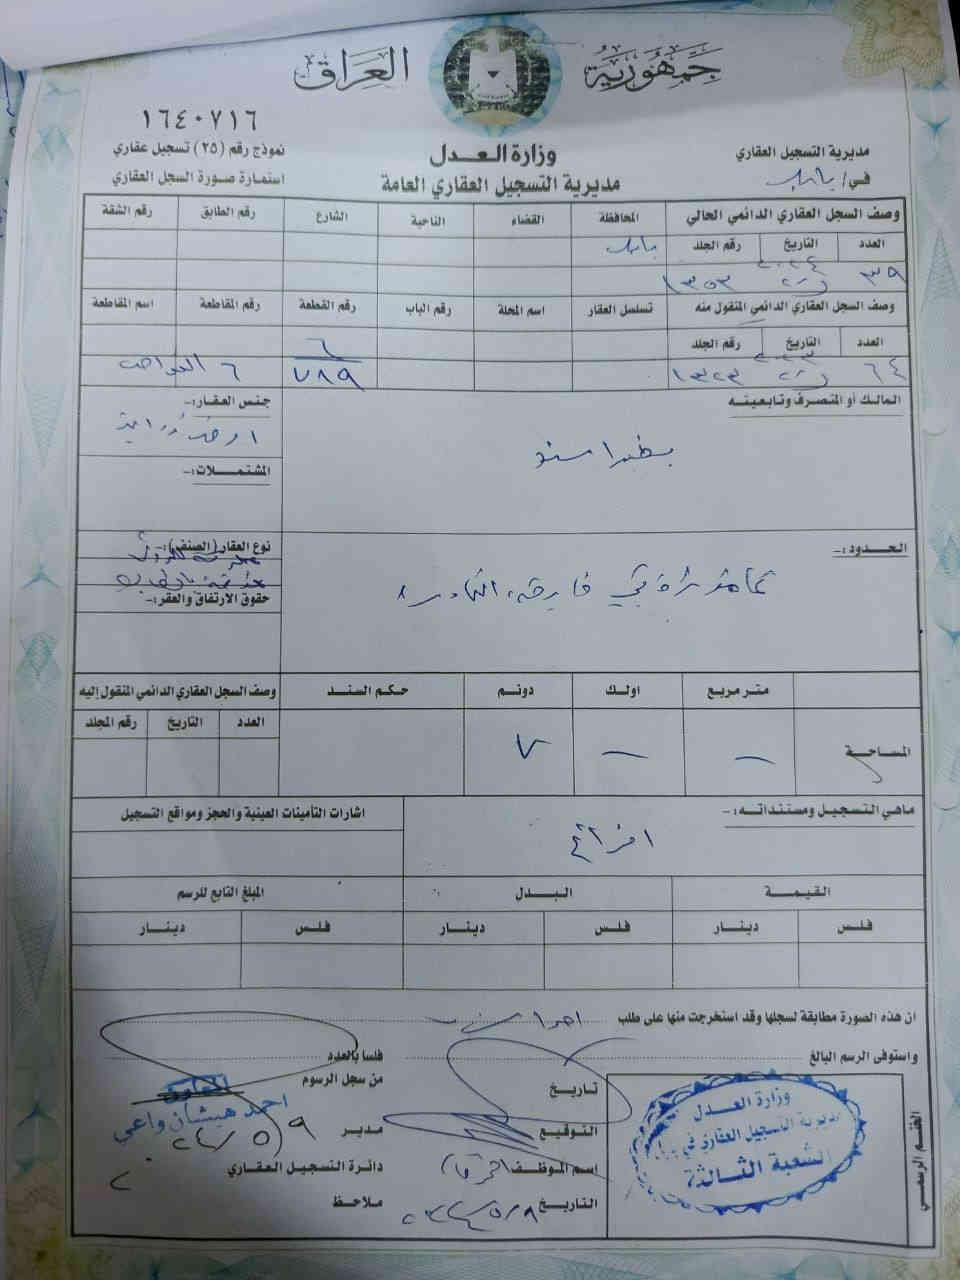 جمهورية العراق
١٦٤٠٧١٦
نموذج رقم (٢٥) تسجيل عقاري
استمارة صورة السجل العقاري
وزارة العدل
مديرية التسجيل العقاري العامة
مديرية التسجيل العقاري
في/ بابل
وصف السجل العقاري الدائمي الحالي
المحافظة
القضاء
الناحية
الشارع
رقم الطابق
رقم الشقة
العدد
التاريخ
رقم الجلد
بابل
٣٩
٢٠٢٤
١٣٥٣
وصف السجل العقاري الدائمي المنقول منه
تسلسل العقار
اسم المحلة
رقم الباب
رقم القطعة
رقم المقاطعة
اسم المقاطعة
العدد
التاريخ
رقم الجلد
٦٤
٢٠٢٣
١٣٢٣
٦
٧٨٩
٦
المالك أو المتصرف وتابعيته
جنس العقار:-
ارض زراعية
المشتملات:-
الحدود:-
نوع العقار (الصنف):-
حقوق الارتفاق والعقر:-
متر مربع
اولك
دونم
حكم السند
وصف السجل العقاري الدائمي المنقول إليه
العدد
التاريخ
رقم المجلد
المساحة
-
-
٧
ماهي التسجيل ومستنداته:-
افراز
اشارات التأمينات العينية والحجز ومواقع التسجيل
القيمة
البدل
المبلغ التابع للرسم
فلس
دينار
فلس
دينار
فلس
دينار
ان هذه الصورة مطابقة لسجلها وقد استخرجت منها على طلب
واستوفى الرسم البالغ
فلسا بالعدد
تاريخ
من سجل الرسوم
المعاون
احمد هيشان واعي
التوقيع
مدير
٩/٥/٢٤
اسم الموظف
دائرة التسجيل العقاري
التاريخ ٢٠٢٤/٥/٩
ملاحظ
الختم الرسمي
وزارة العدل
مديرية التسجيل العقاري في بابل
الشعبة الثالثة